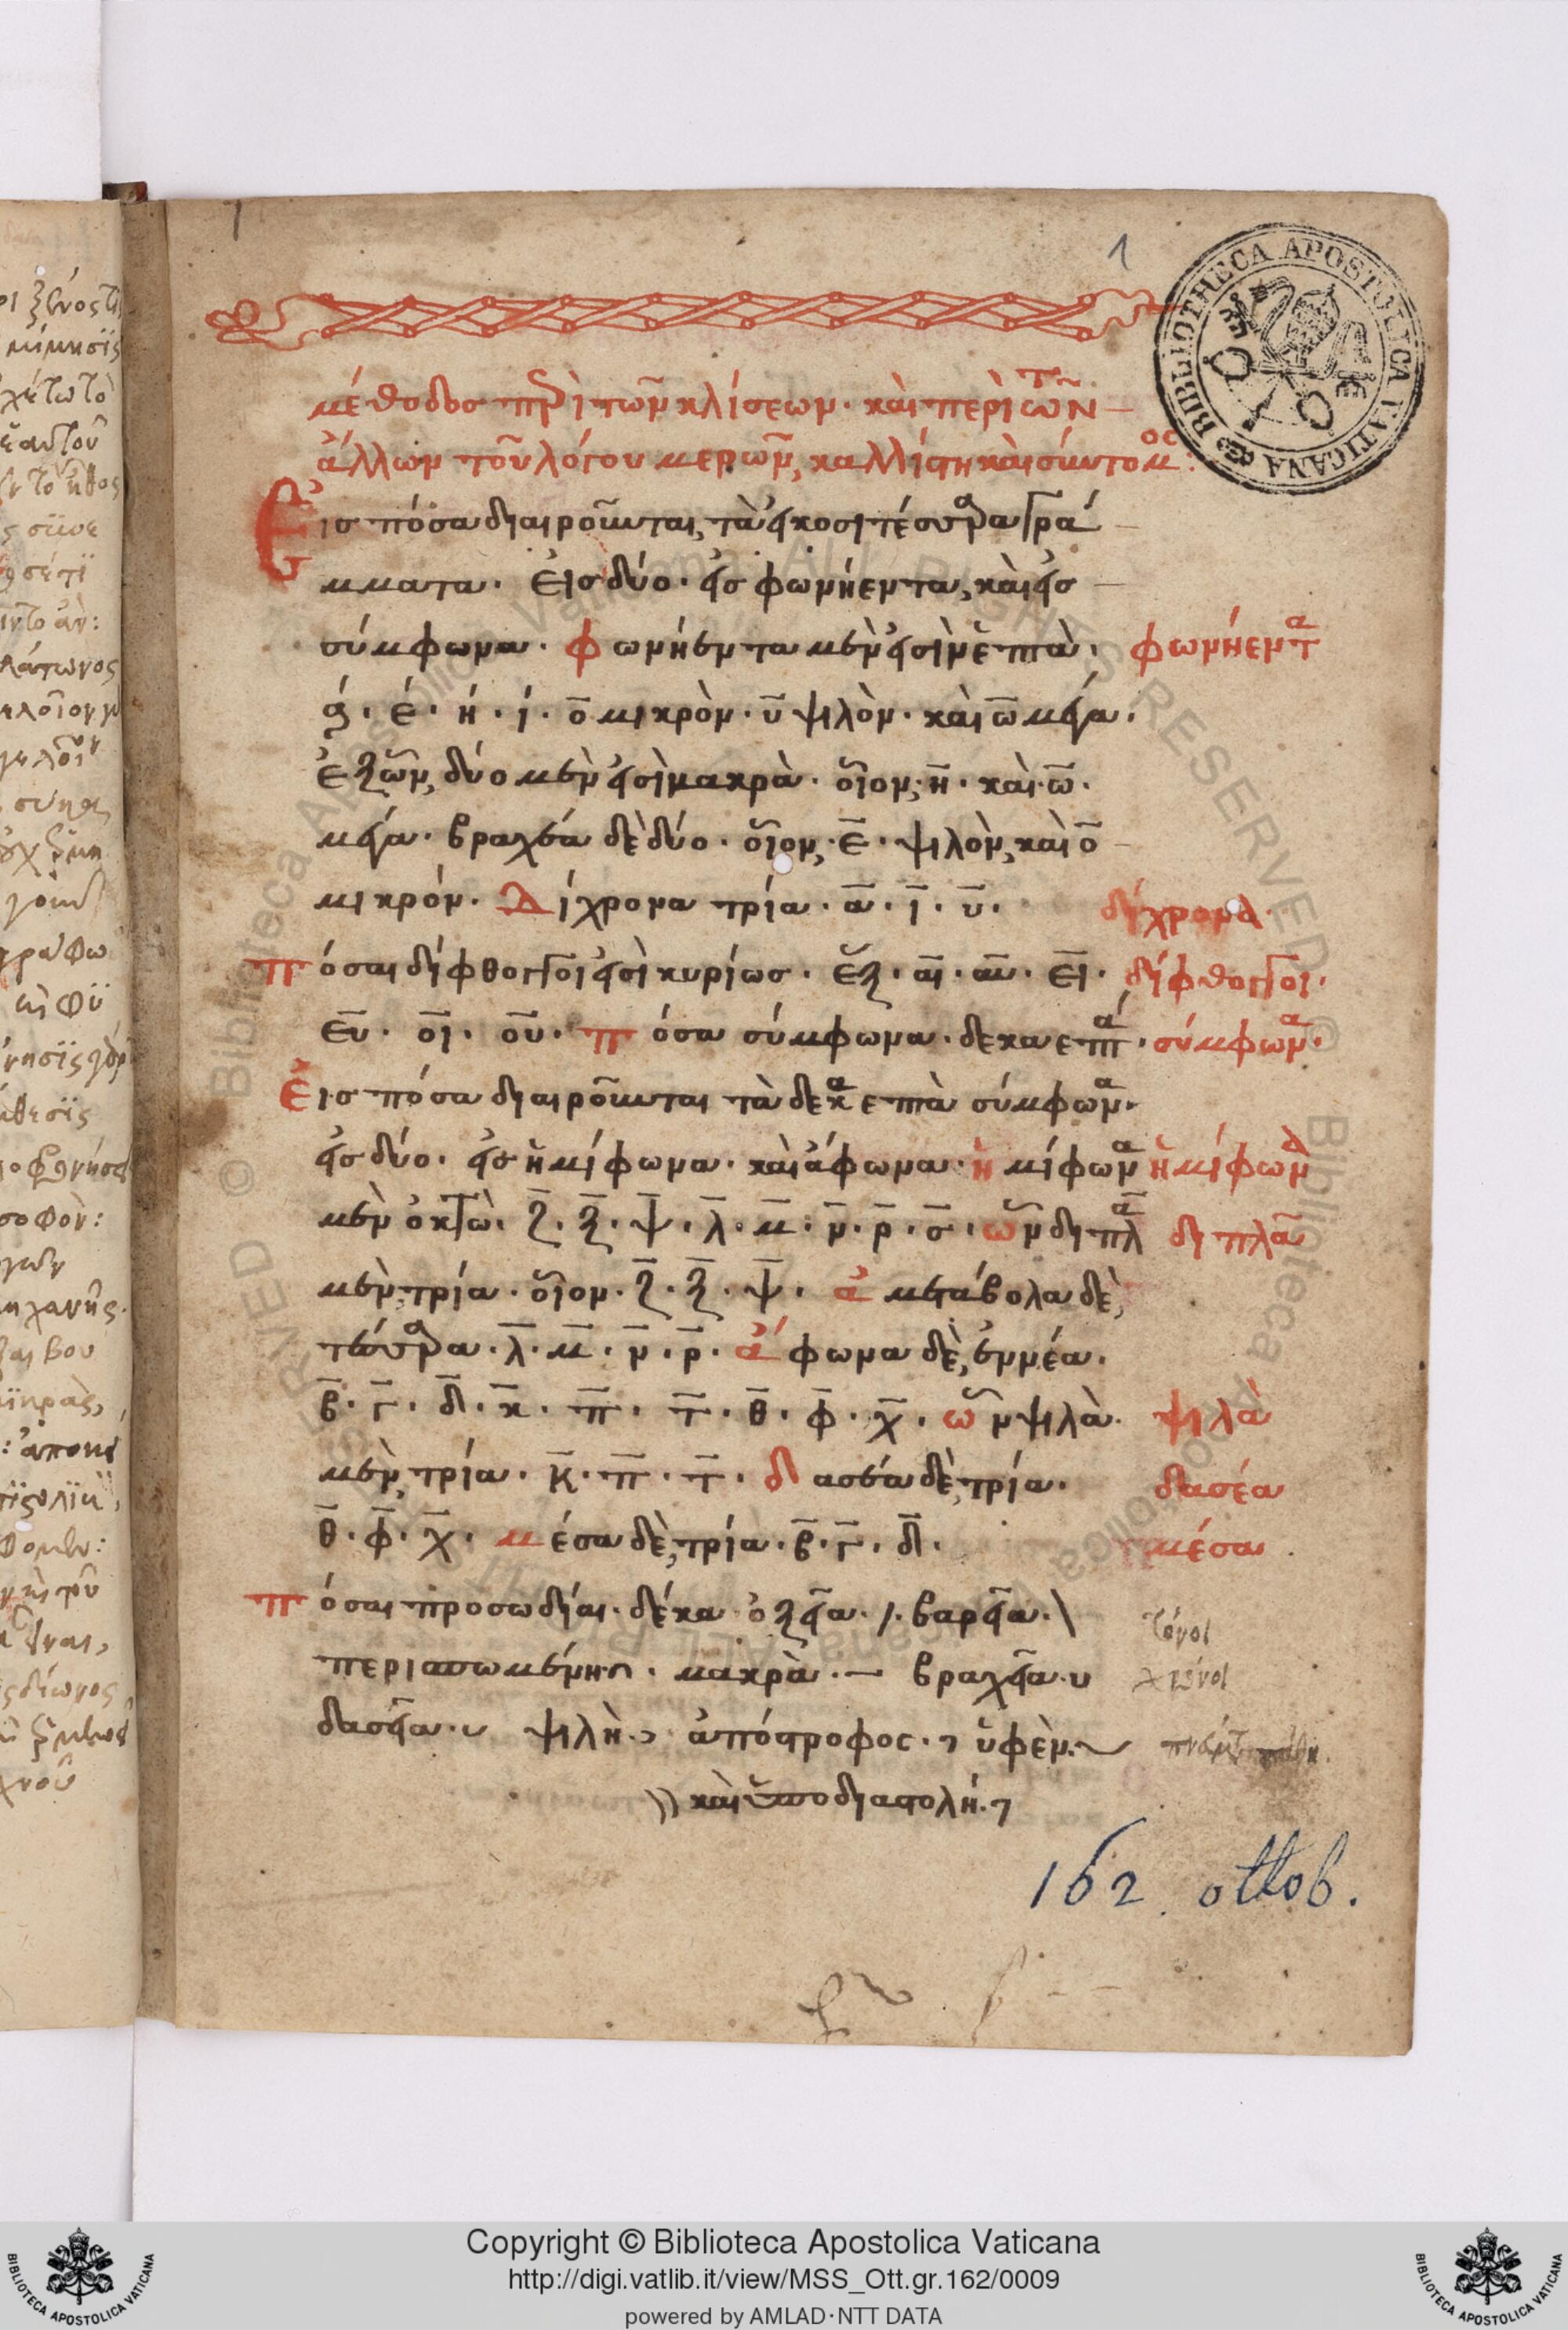 1
μέθοδος περὶ τῶν κλίσεων· καὶ περὶ τῶν
ἄλλων τοῦ λόγου μερῶν, καλλίστη καὶ σύντομος:
Εἰς πόσα διαιροῦνται, τὰ εἰκοσιτέσσαρα γρά
μματα· εἰς δύο· εἰς φωνήεντα, καὶ εἰς
σύμφωνα· φωνήεντα μὲν εἰσὶν ἑπτὰ· φωνήεντα
ά· έ· ή· ί· ο̄ μικρὸν· ῡ ψιλὸν· καὶ ω̄ μέγα·
ἐξ ὧν, δύο μὲν εἰσὶ μακρὰ· οἷον, η̄· καὶ· ω̄·
μέγα· βραχέα δὲ δύο· οἷον, ε̄· ψιλὸν, καὶ ο̄
μικρόν· Δίχρονα τρία· ᾱ· ῑ· ῡ· δίχρονα·
πόσαι δίφθογγοι εἰσὶ κυρίως· ἕξ· αῑ· αῡ· εῑ· δίφθογγοι·
εῡ· οῑ· οῡ· πόσα σύμφωνα· δεκαεπτά· σύμφωνα·
Εἰς πόσα διαιροῦνται τὰ δεκαεπτὰ σύμφωνα·
εἰς δύο· εἰς ἡμίφωνα· καὶ ἄφωνα· ἡμίφωνα ἡμίφωνα
μὲν ὀκτὼ· ζ̄· ξ̄· ψ̄· λ̄· μ̄· ν̄· ρ̄· σ̄· ὧν διπλᾶ διπλᾶ
μὲν, τρία· οἷον· ζ̄· ξ̄· ψ̄· ἀμετάβολα δὲ,
τέσσαρα· λ̄· μ̄· ν̄· ρ̄· ἄφωνα δὲ, ἐννέα·
β̄· γ̄· δ̄· κ̄· π̄· τ̄· θ̄· φ̄· χ̄· ὧν ψιλὰ· ψιλὰ
μὲν, τρία· κ̄· π̄· τ̄· δασέα δὲ, τρία· δασέα
θ̄· φ̄· χ̄· μέσα δὲ, τρία· β̄· γ̄· δ̄· μέσα
πόσαι προσωδίαι· δέκα· ὀξεῖα· /· βαρεῖα·\ τόνοι
περισπωμένη· ῀· μακρὰ·— βραχεῖα·υ χρόνοι
δασεῖα· ψιλὴ· ἀπόστροφος· ὑφὲν·
καὶ ὑποδιαστολή·
162. ottob.
BIBLIOTHECA APOSTOLICA VATICANA
Copyright © Biblioteca Apostolica Vaticana
http://digi.vatlib.it/view/MSS_Ott.gr.162/0009
powered by AMLAD·NTT DATA
BIBLIOTECA APOSTOLICA VATICANA
BIBLIOTECA APOSTOLICA VATICANA